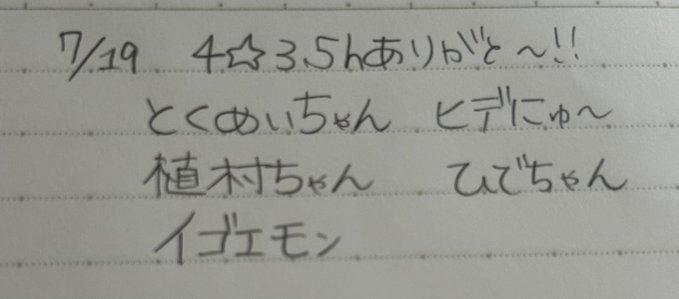 7/19 4☆3.5hありがと〜!!
とくめいちゃん ヒデにゅ〜
植村ちゃん ひでちゃん
イゴエモン